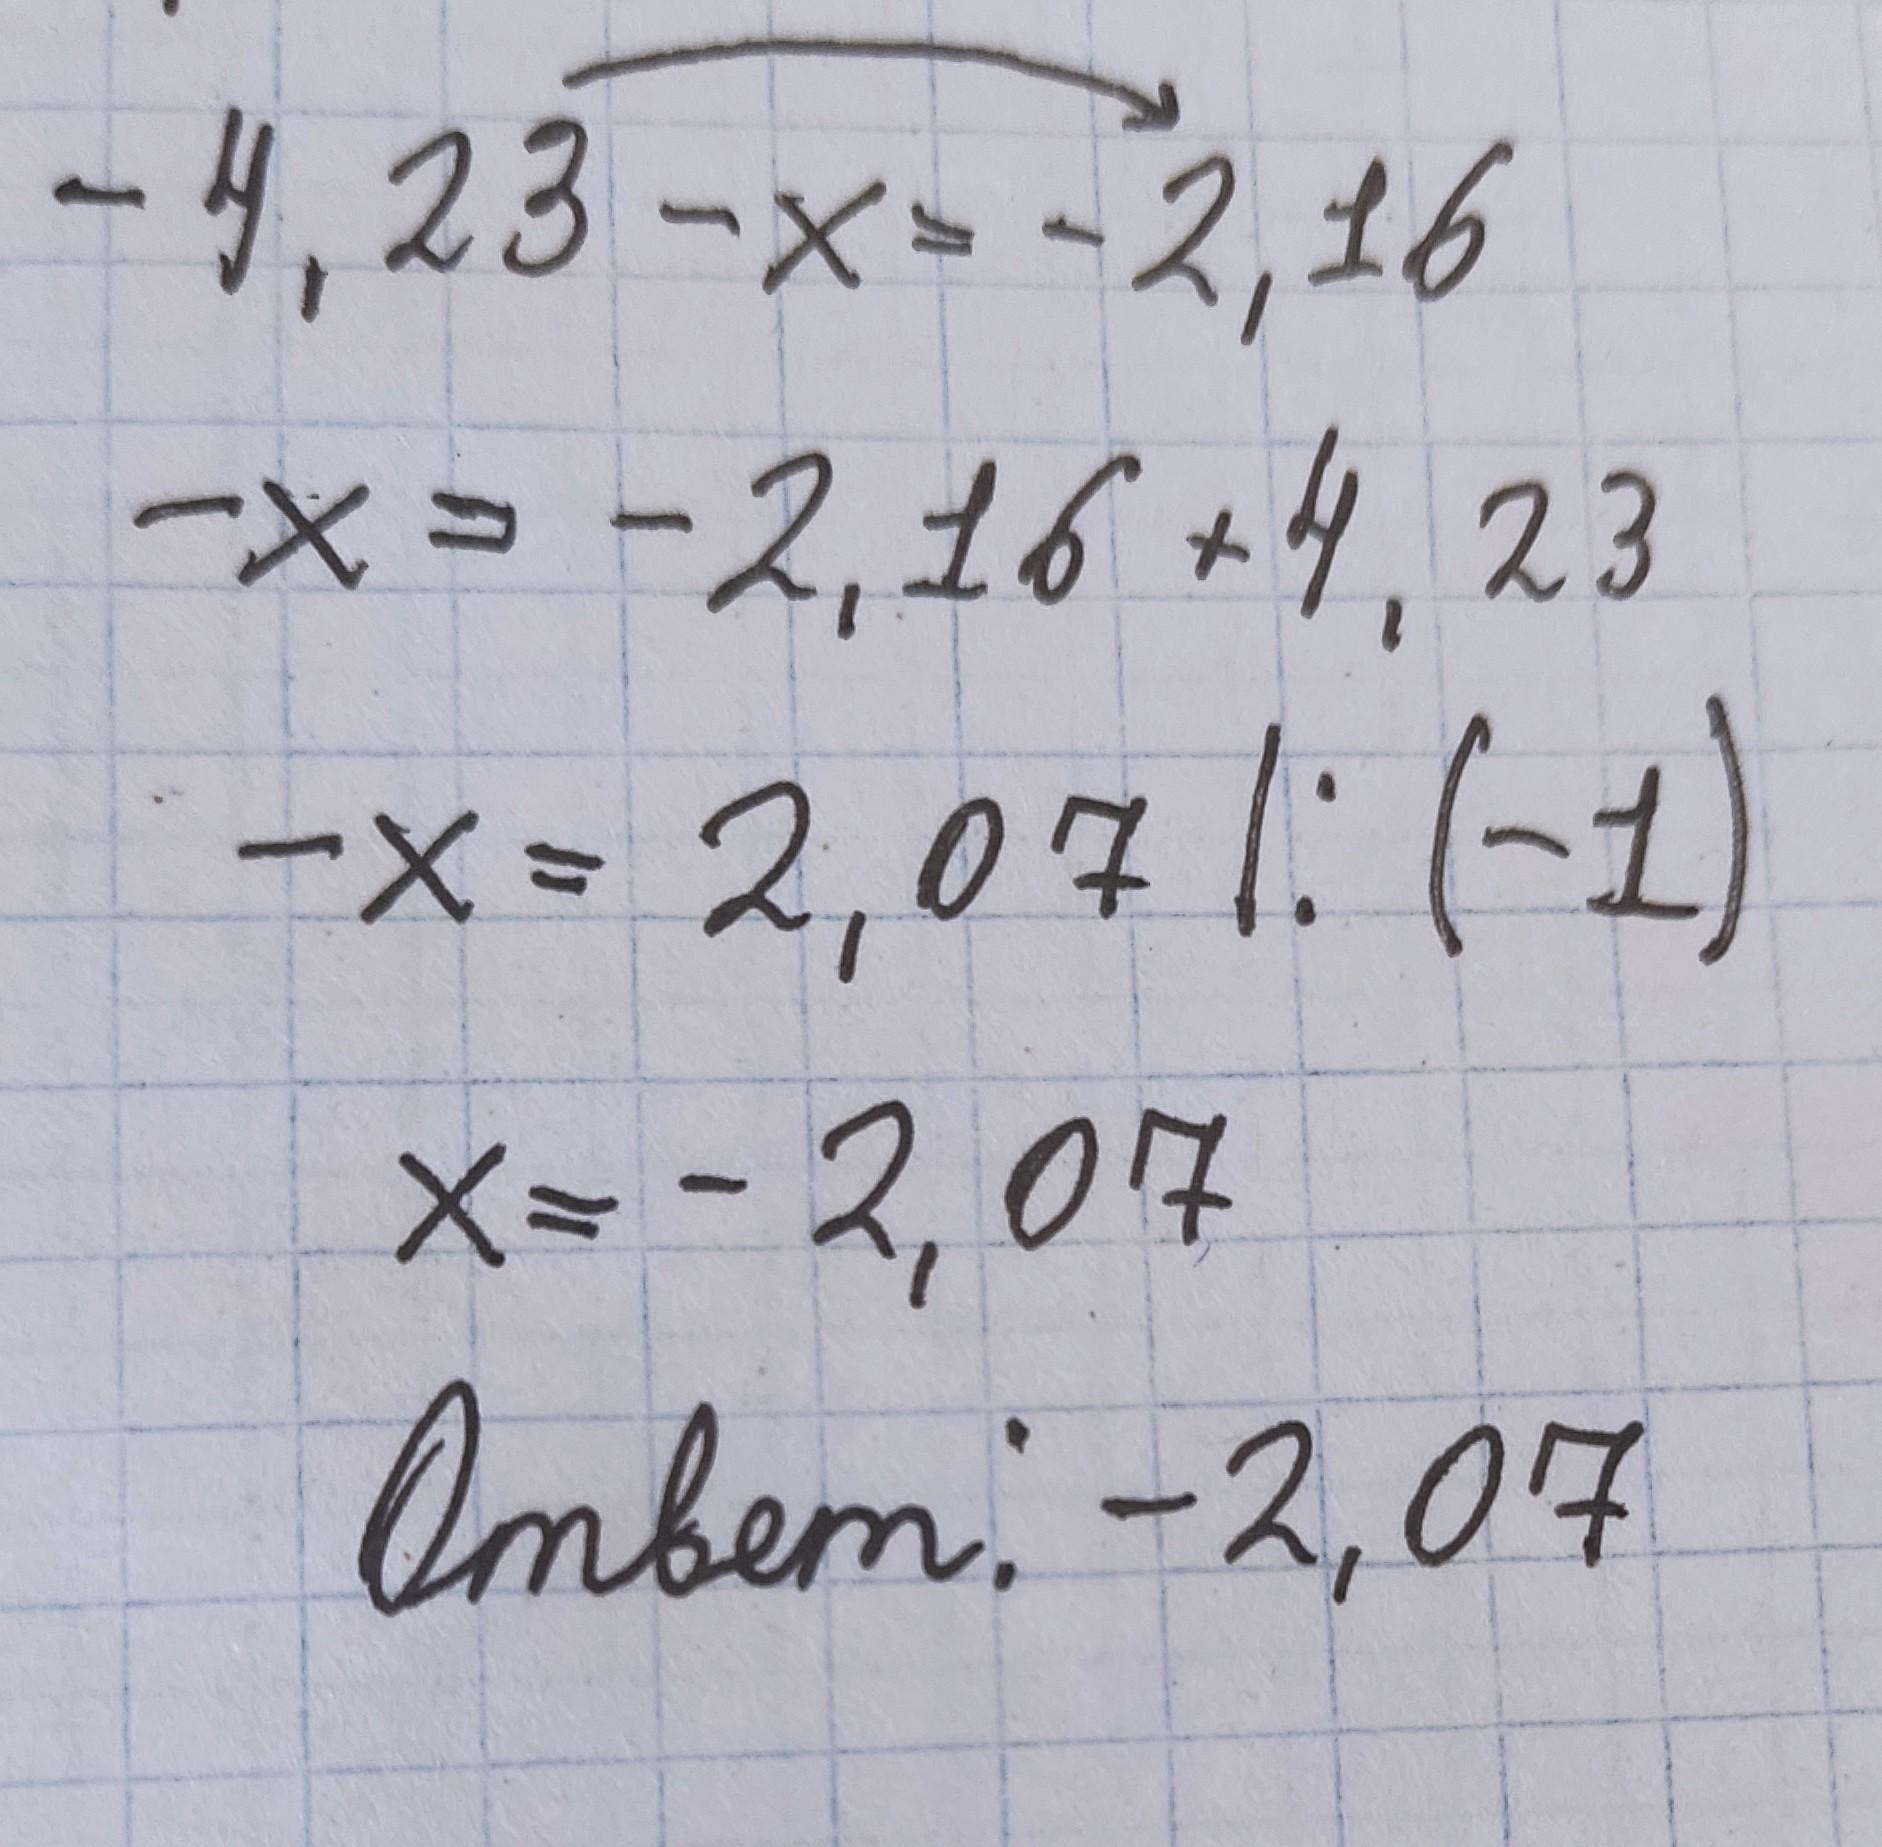 -4,23 - x = -2,16
-x = -2,16 + 4,23
-x = 2,07 |: (-1)
x = -2,07
Ответ: -2,07